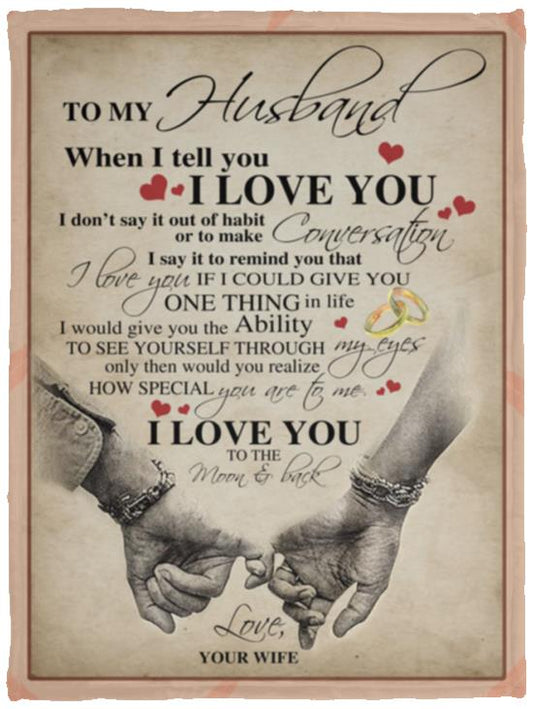 TO MY Husband
When I tell you
I LOVE YOU
I don't say it out of habit
or to make Conversation
I say it to remind you that
I love you IF I COULD GIVE YOU
ONE THING in life
I would give you the Ability
TO SEE YOURSELF THROUGH my eyes
only then would you realize
HOW SPECIAL you are to me.
I LOVE YOU
TO THE
Moon & back
Love,
YOUR WIFE